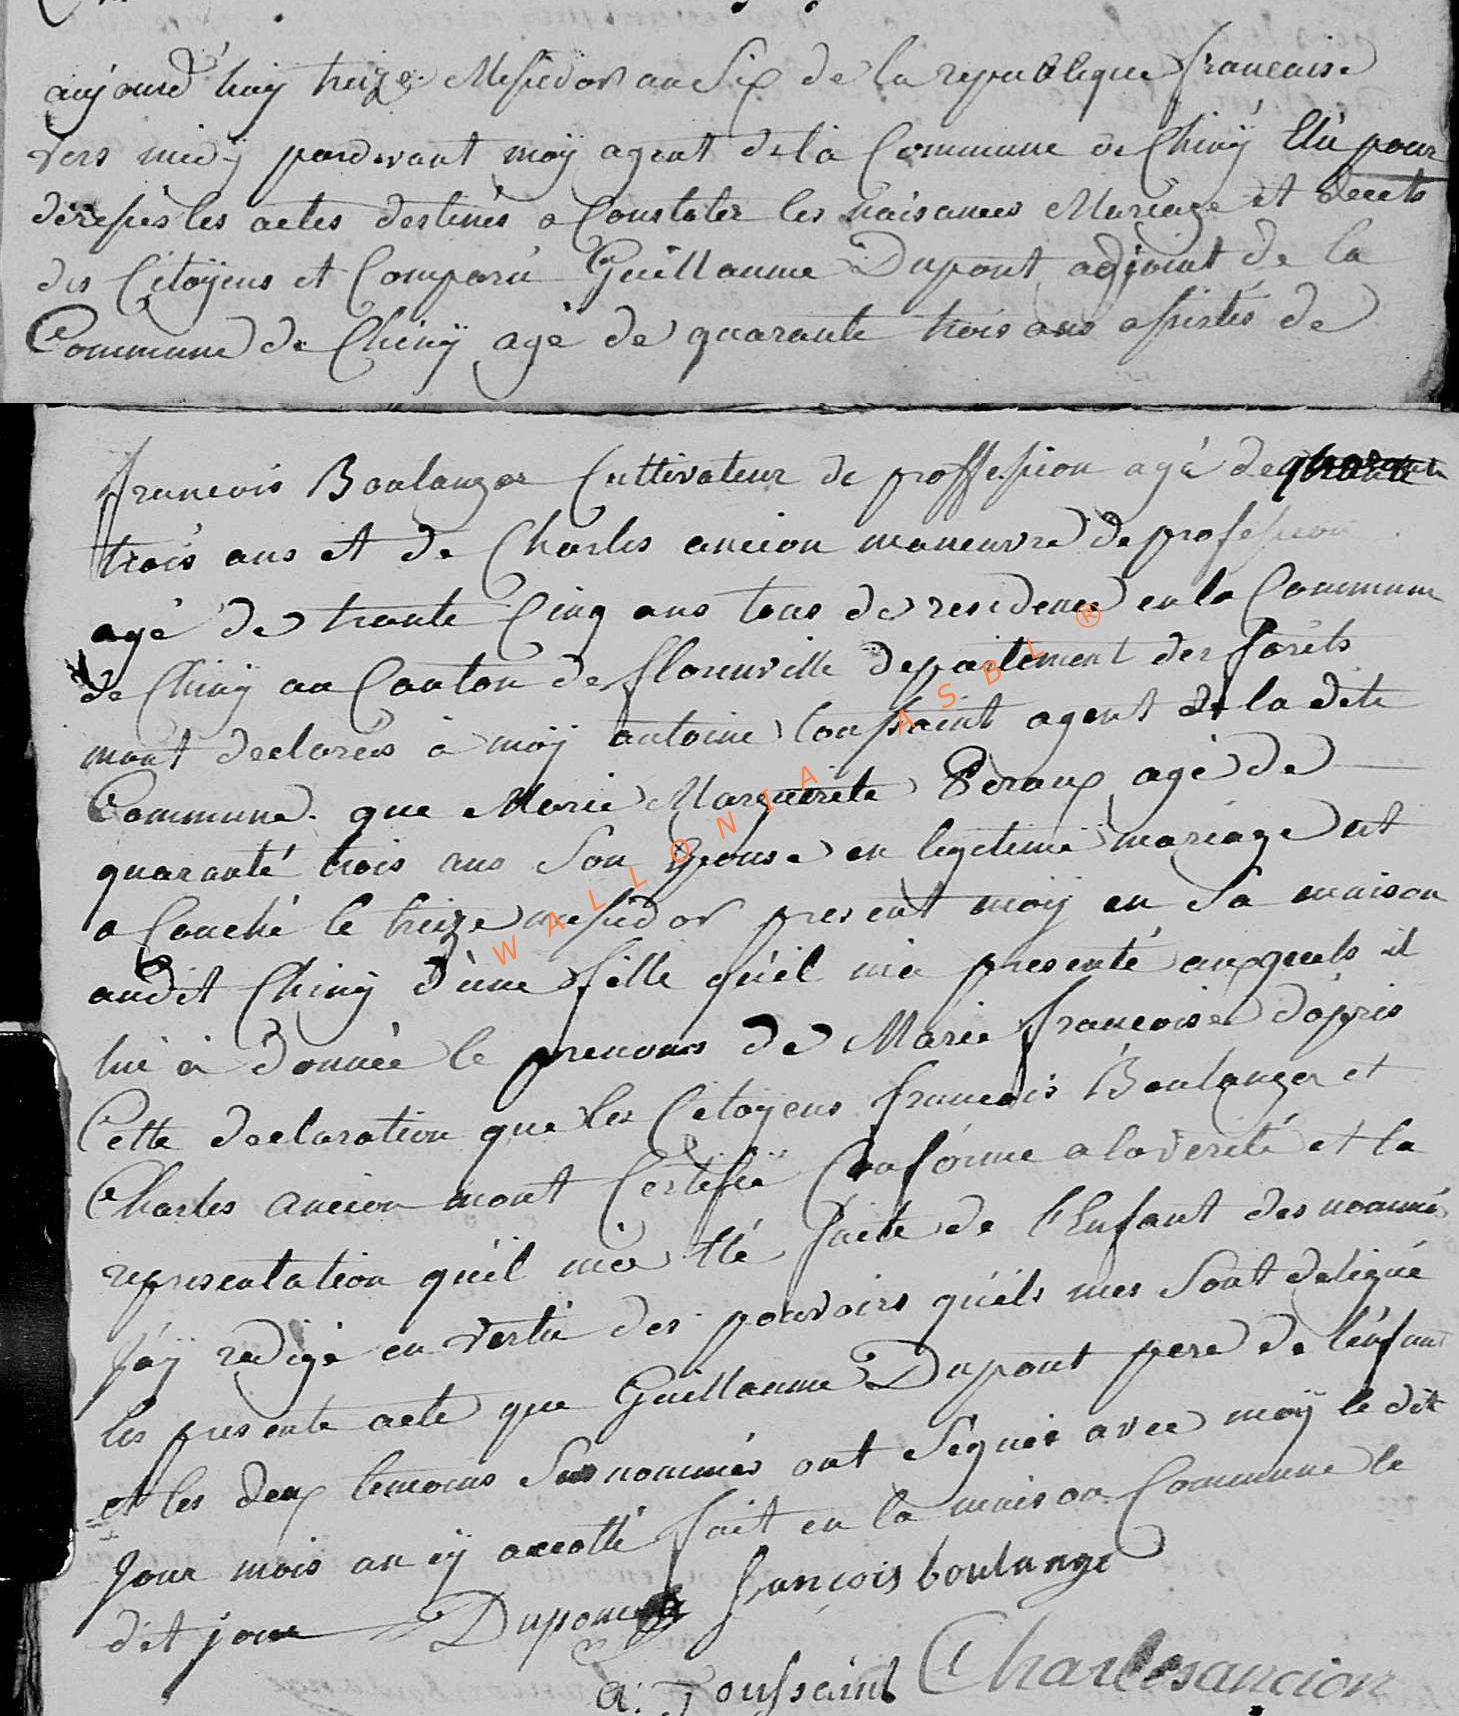 aujourd'huy treize Messidor an Six de la republique francaise
vers midÿ pardevant moÿ agent de la Commune de Chinÿ Elu pour
les actes destinés a Constater les naisances Mariage et decets
des Citoÿens et Comparu Guillaume Dupont adjoint de la
Commune de Chinÿ agé de quarante trois ans assistés de
francois Boulanger Cultivateur de proffession agé de quarante
trois ans et de Charles ancion maneuvre de profession
agé de trente Cinq ans tous de residence en la Commune
de Chinÿ au Canton de florenville departement des forêts
mont declarés a moÿ antoine toussaint agent de la dite
Commune. que Marie Marguerite agé de
quaranté trois ans son Epouse en legitime mariage est
a Couché le treize messidor present moÿ en sa maison
audit Chinÿ d'une fille quil ma presenté auxquels il
lui à donnée le prenoms de Marie francoise d'apris
Cette declaration que les Citoyens francois Boulanger et
Charles ancion mont Certifié Conforme a la verité et la
representation quil ma eté faite de l'Enfant des nommé
J'aÿ redigé en vertu des pouvoirs quils mes sont deligué
les presente acte que Guillaume Dupont pere de l'enfant
et les deux temoins susnommés ont signée avec moÿ le dit
Jour mois an eÿ fait en la maison Commune le
dit jour Dupont francois boulange
a. Toussaint Charles ancion
WALLONIA ASBL ®